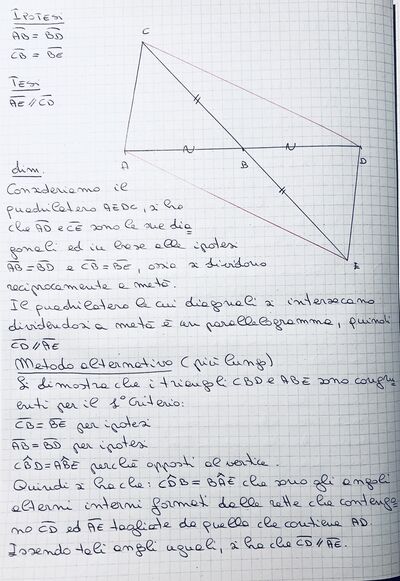 IPOTESI
AB = BD
CB = BE
TESI
AE // CD
C
A
B
D
E
dim.
Consideriamo il
quadrilatero AEDC, si ha
che AD e CE sono le sue dia
gonali ed in base alle ipotesi
AB = BD e CB = BE, ossia si dividono
reciprocamente a metà.
Il quadrilatero le cui diagonali si intersecano
dividendosi a metà è un parallelogramma, quindi
CD // AE
Metodo alternativo (più lungo)
Si dimostra che i triangoli CBD e ABE sono congru
enti per il 1° Criterio:
CB = BE per ipotesi
AB = BD per ipotesi
CB̂D = AB̂E perché opposti al vertice.
Quindi si ha che: CD̂B = BÂE che sono gli angoli
alterni interni formati dalle rette che contengo
no CD ed AE tagliate da quella che contiene AD.
Essendo tali angli uguali, si ha che CD // AE.